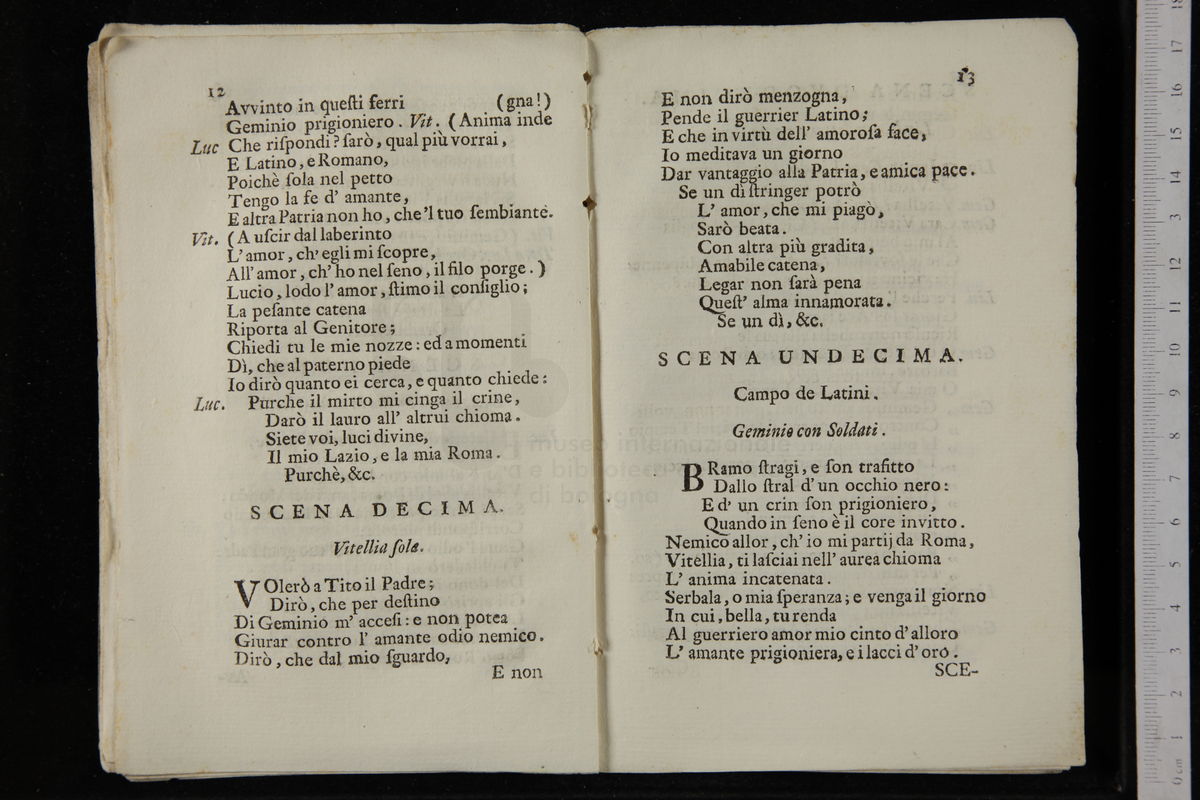 12
Avvinto in queſti ferri (gna!)
Geminio prigioniero. Vit. (Anima inde
Luc Che riſpondi? ſarò, qual più vorrai,
E Latino, e Romano,
Poichè ſola nel petto
Tengo la fe d' amante,
E altra Patria non ho, che 'l tuo ſembiante.
Vit. (A uſcir dal laberinto
L' amor, ch' egli mi ſcopre,
All' amor, ch' ho nel ſeno, il filo porge.)
Lucio, lodo l' amor, ſtimo il conſiglio;
La peſante catena
Riporta al Genitore;
Chiedi tu le mie nozze: ed a momenti
Dì, che al paterno piede
Io dirò quanto ei cerca, e quanto chiede:
Luc. Purche il mirto mi cinga il crine,
Darò il lauro all' altrui chioma.
Siete voi, luci divine,
Il mio Lazio, e la mia Roma.
Purchè, &c.
SCENA DECIMA.
Vitellia ſola.
VOlerò a Tito il Padre;
Dirò, che per deſtino
Di Geminio m' acceſi: e non potea
Giurar contro l' amante odio nemico.
Dirò, che dal mio ſguardo,
E non
13
E non dirò menzogna,
Pende il guerrier Latino;
E che in virtù dell' amoroſa face,
Io meditava un giorno
Dar vantaggio alla Patria, e amica pace.
Se un dì ſtringer potrò
L' amor, che mi piagò,
Sarò beata.
Con altra più gradita,
Amabile catena,
Legar non ſarà pena
Queſt' alma innamorata.
Se un dì, &c.
SCENA UNDECIMA.
Campo de Latini.
Geminio con Soldati.
BRamo ſtragi, e ſon trafitto
Dallo ſtral d' un occhio nero:
E d' un crin ſon prigioniero,
Quando in ſeno è il core invitto.
Nemico allor, ch' io mi partij da Roma,
Vitellia, ti laſciai nell' aurea chioma
L' anima incatenata.
Serbala, o mia ſperanza; e venga il giorno
In cui, bella, tu renda
Al guerriero amor mio cinto d' alloro
L' amante prigioniera, e i lacci d' oro.
SCE-
museo internazionale
e biblioteca
di bologna